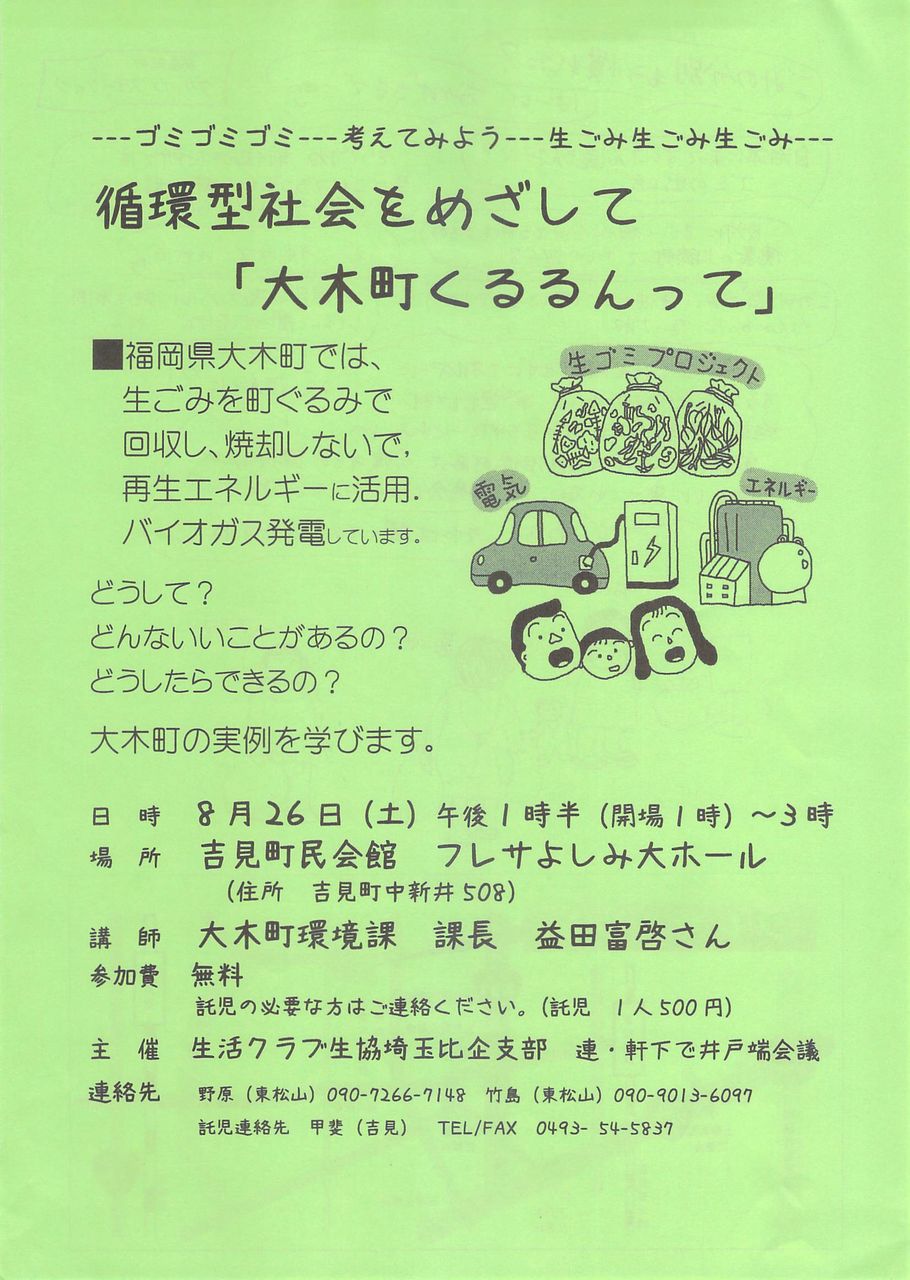 ---ゴミゴミゴミ---考えてみよう---生ごみ生ごみ生ごみ---
循環型社会をめざして
「大木町くるるんって」
■福岡県大木町では、
生ごみを町ぐるみで
回収し、焼却しないで，
再生エネルギーに活用．
バイオガス発電しています。
生ゴミプロジェクト
電気
エネルギー
どうして？
どんないいことがあるの？
どうしたらできるの？
大木町の実例を学びます。
日 時 8月26日（土）午後1時半（開場1時）～3時
場 所 吉見町民会館 フレサよしみ大ホール
（住所 吉見町中新井508）
講 師 大木町環境課 課長 益田富啓さん
参加費 無料
託児の必要な方はご連絡ください。（託児 1人500円）
主 催 生活クラブ生協埼玉比企支部 連・軒下で井戸端会議
連絡先 野原（東松山）090-7266-7148 竹島（東松山）090-9013-6097
託児連絡先 甲斐（吉見） TEL/FAX 0493- 54-5837